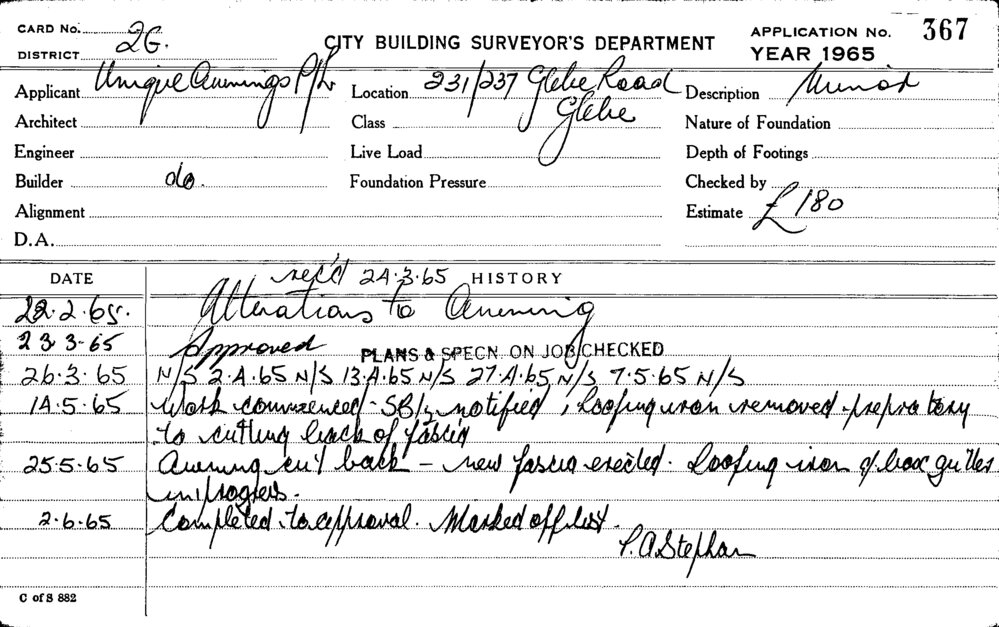 CARD No. 2G.
DISTRICT
CITY BUILDING SURVEYOR'S DEPARTMENT
APPLICATION No. 367
YEAR 1965
Applicant Unique Awnings P/L
Location 231/237 Glebe Road
Glebe
Description Minor
Architect
Class
Nature of Foundation
Engineer
Live Load
Depth of Footings
Builder do.
Foundation Pressure
Checked by
Alignment
Estimate £180
D.A.
DATE
rec'd 24.3.65 HISTORY
22.2.65. Alterations to Awning
23 3.65 Approved PLANS & SPECN. ON JOB CHECKED
26.3.65 N/S 2.4.65 N/S 13.4.65 N/S 27.4.65 N/S 7.5.65 N/S
14.5.65 Work commenced - notified ; Roofing iron removed prepratory
to cutting back of fascia
25.5.65 Awning cut back - new fascia erected. Roofing iron & box gutters
in progress.
2.6.65 Completed to approval. Marked off list.
P.A. Stephan
C of S 882